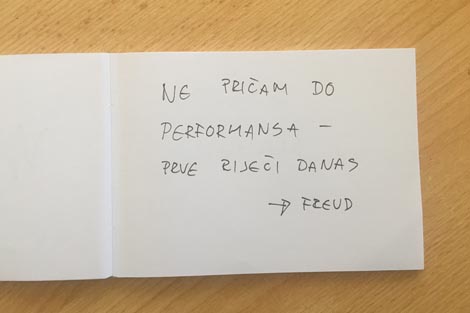 NE PRIČAM DO
PERFORMANSA –
PRVE RIJEČI DANAS
→ FREUD